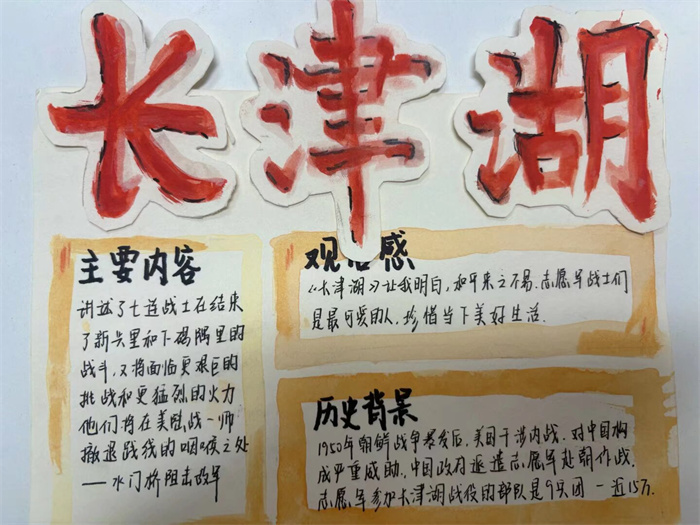 长津湖
主要内容
讲述了七连战士在结束
了新兴里和下碣隅里的
战斗，又将面临更艰巨的
挑战和更猛烈的火力
他们将在美陆战一师
撤退路线的咽喉之处
——水门桥阻击敌军
观后感
《长津湖》让我明白，和平来之不易.志愿军战士们
是最可爱的人，珍惜当下美好生活.
历史背景
1950年朝鲜战争爆发后，美国干涉内战，对中国构
成严重威胁，中国政府派遣志愿军赴朝作战.
志愿军参加长津湖战役的部队是9兵团一近15万.